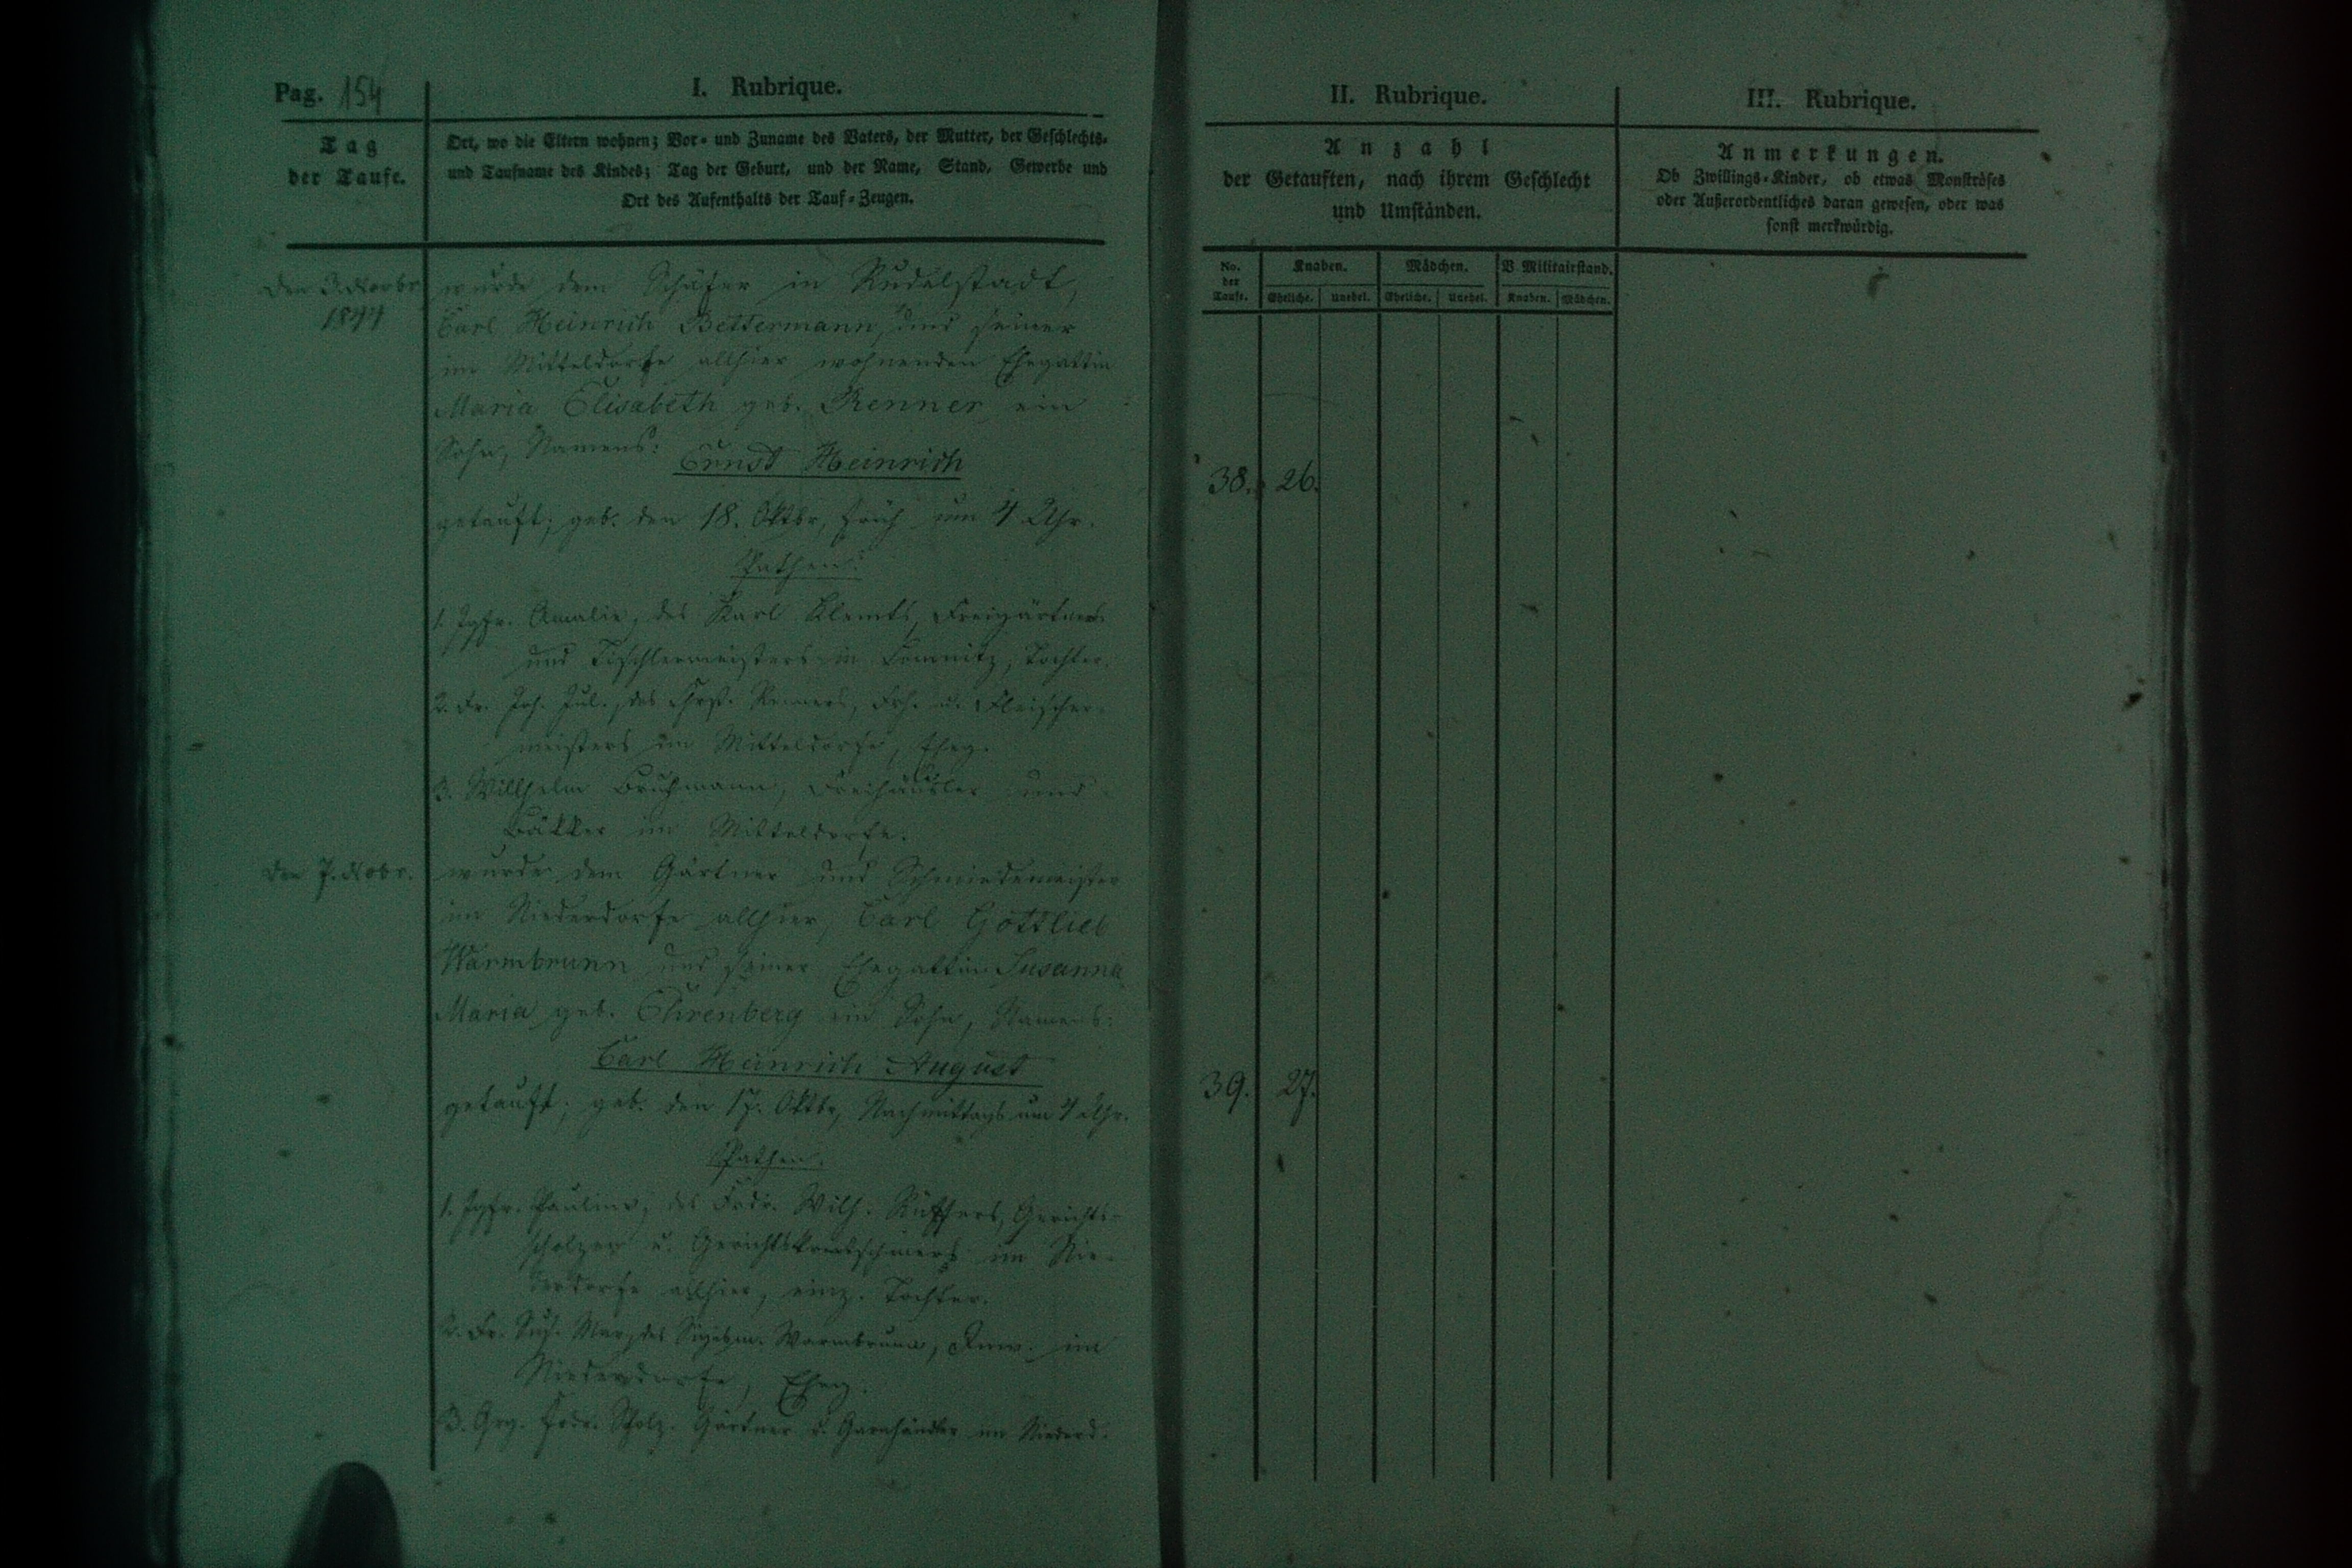 Pag. 154
I. Rubrique.
Tag
der Taufe.
Ort, wo die Eltern wohnen; Vor- und Zuname des Vaters, der Mutter, der Geschlechts-
und Taufname des Kindes; Tag der Geburt, und der Name, Stand, Gewerbe und
Ort des Aufenthalts der Tauf-Zeugen.
den 3. Novbr
1844
wurde dem Schäfer in Rudelstadt,
Carl Heinrich Bettermann, und seiner
im Mitteldorfe allhier wohnenden Ehegattin
Maria Elisabeth geb. Renner ein
Sohn, Namens:
Ernst Heinrich
getauft; geb. den 18. Oktbr, früh um 4 Uhr.
Pathen:
1. Jgfr. Amalie, des Karl Klemts, Freigärtners
und Tischlermeisters in Lomnitz, Tochter.
2. Fr. Joh. Jul., des Renners, Frh. u. Fleischer-
meisters im Mitteldorfe, Eheg.
3. Willhelm Bruchmann, Freihäusler und
Bäkker im Mitteldorfe.
den 7. Nobr.
wurde dem Gärtner und Schmiedemeister
im Niederdorfe allhier, Carl Gottlieb
Warmbrunn und seiner Ehegattin Susanna
Maria geb. Ehrenberg ein Sohn, Namens:
Carl Heinrich August
getauft; geb. den 17. Oktbr, Nachmittags um 4 Uhr.
Pathen.
1. Jgfr. Pauline, des Frdr. Wilh. Rüffers, Gerichts-
scholzen u. Gerichtskretschmers im Nie-
derdorfe allhier, einz. Tochter.
2. Fr. Sus. Mar., des Warmbrunn, Inw. im
Niederdorfe, Eheg.
3. Frdr. Scholz. Gärtner u. Garnhändler im Niederd.
II. Rubrique.
Anzahl
der Getauften, nach ihrem Geschlecht
und Umständen.
No. der Taufe. Knaben. Mädchen. V. Militairstand.
Eheliche. Unehel. Eheliche. Unehel. Knaben. Mädchen.
38. 26.
39. 27.
III. Rubrique.
Anmerkungen.
Ob Zwillings-Kinder, ob etwas Monströses
oder Außerordentliches daran gewesen, oder was
sonst merkwürdig.